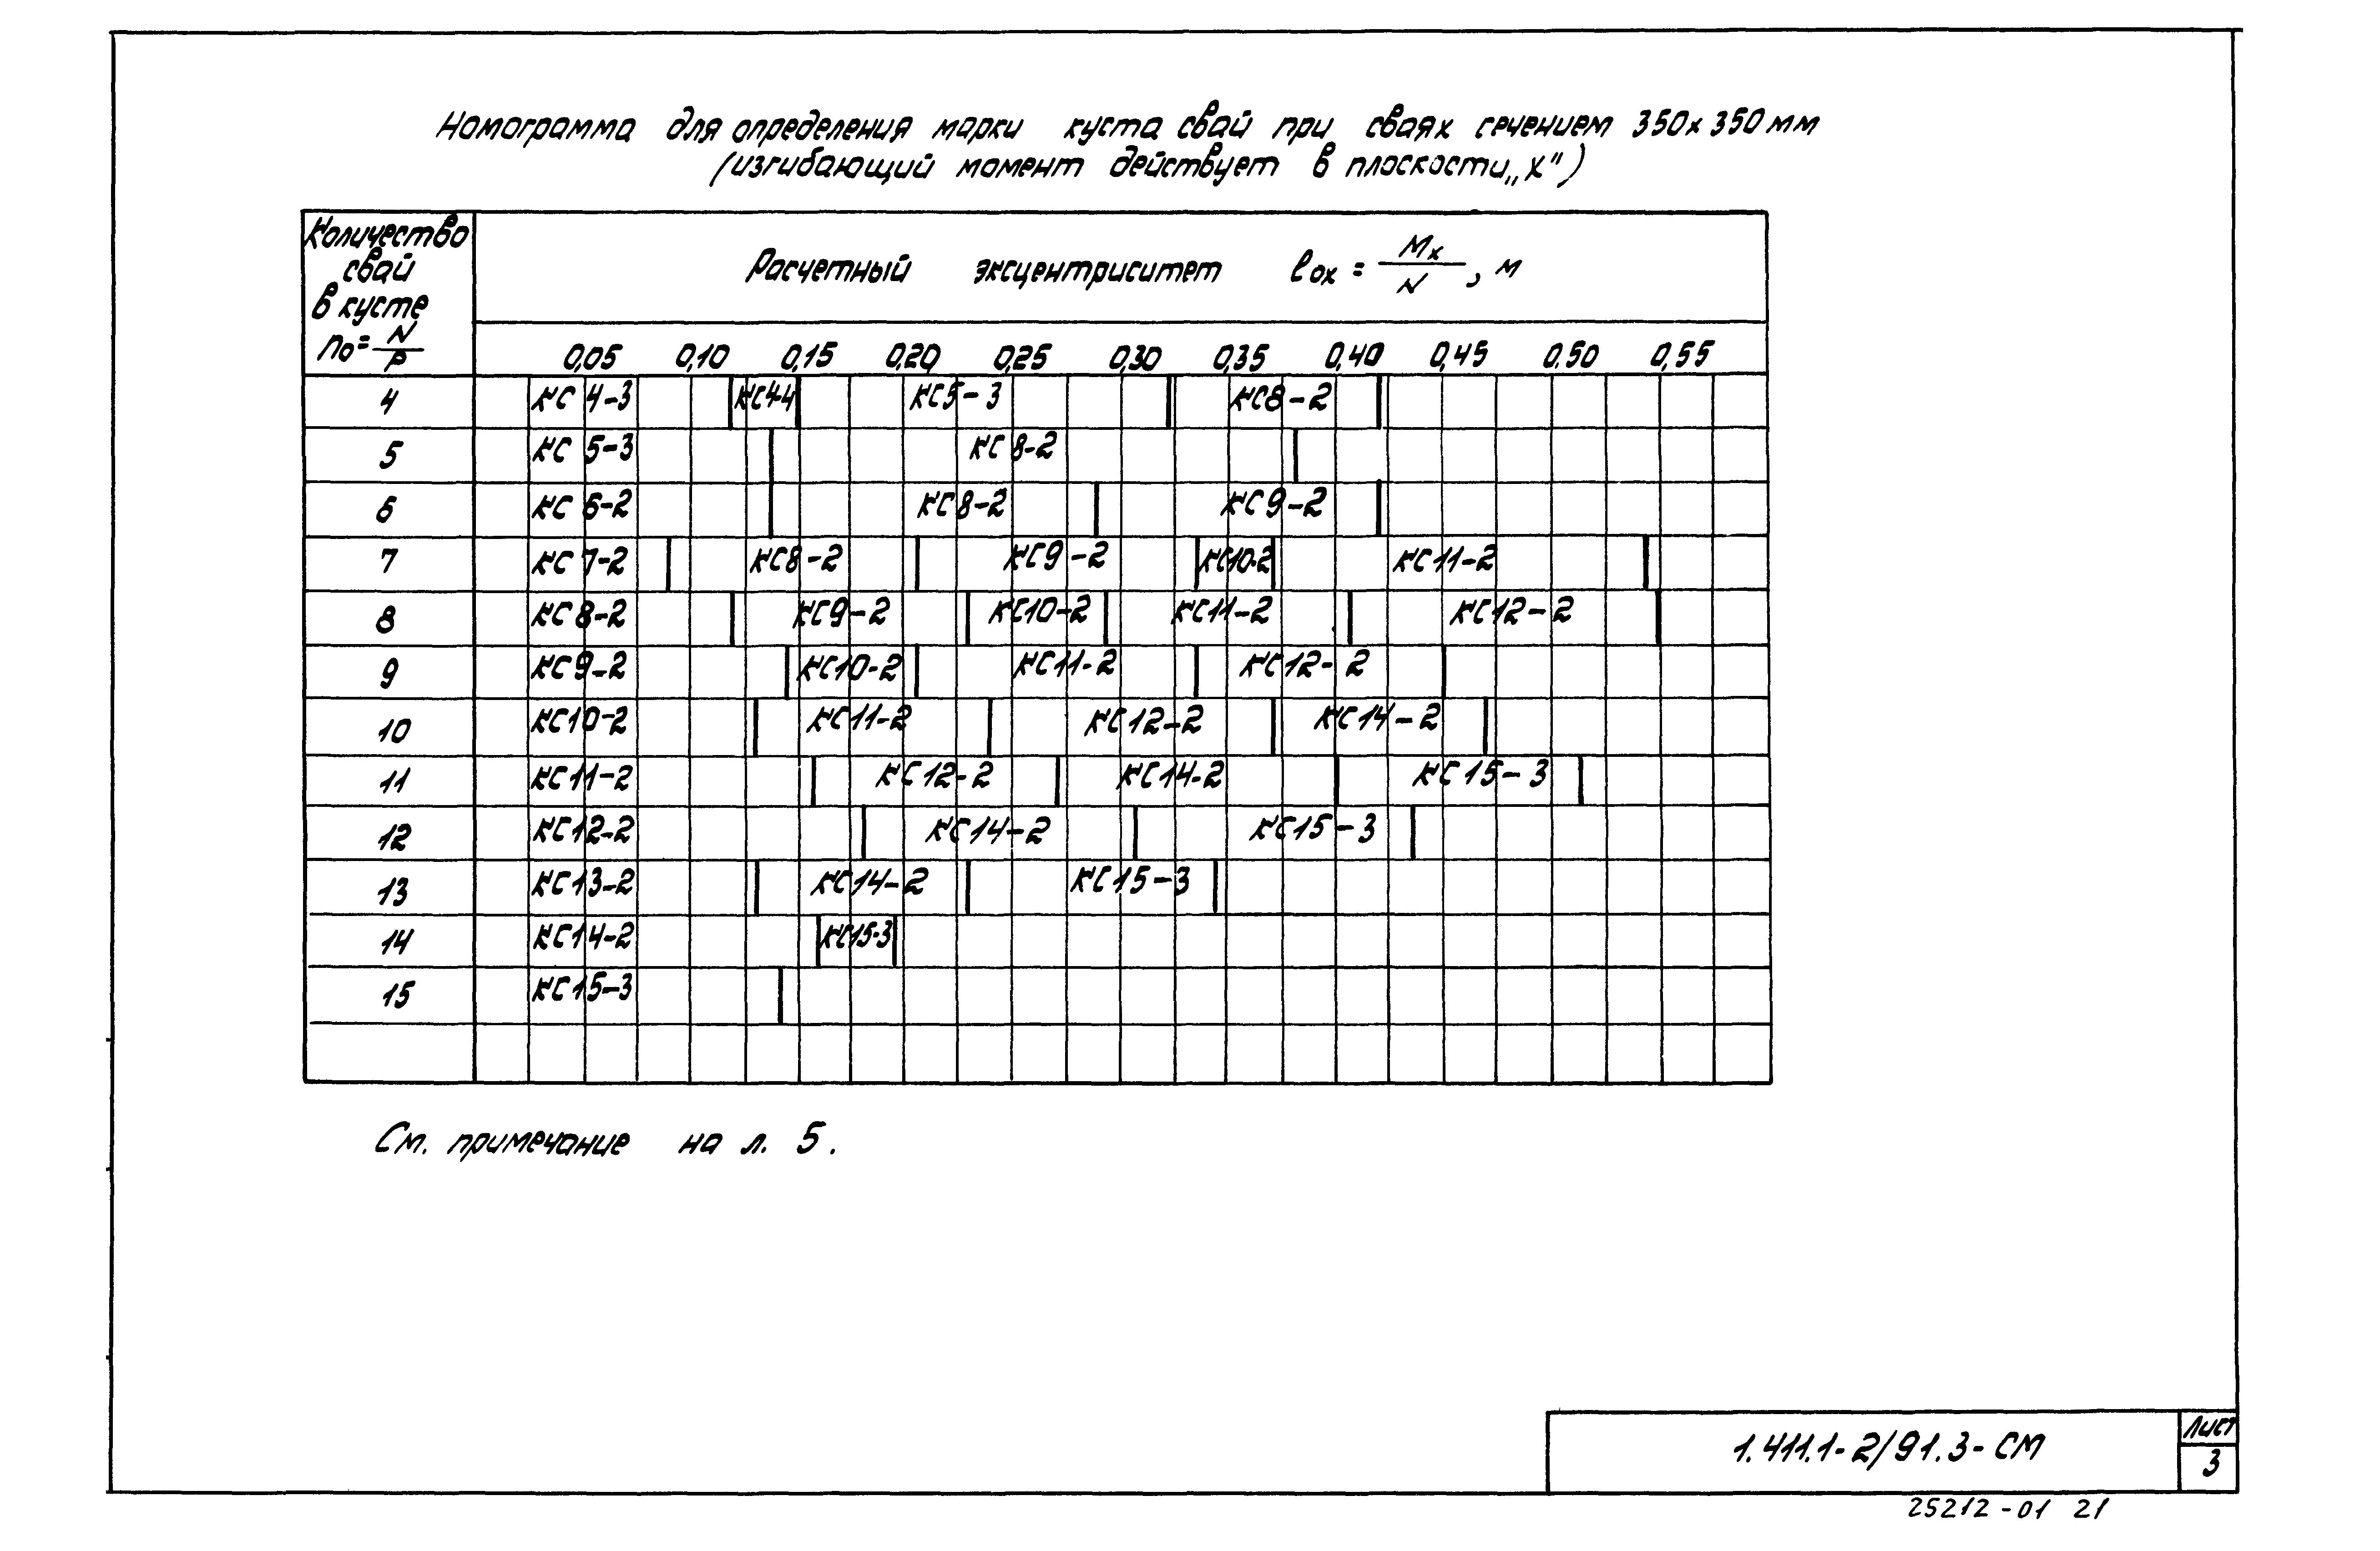 Номограмма для определения марки куста свай при сваях сечением 350х350мм
(изгибающий момент действует в плоскости „х")
Количество
свай
в кусте
n₀= N/P
Расчетный эксцентриситет ℓox = Mx/N , м
0,05 0,10 0,15 0,20 0,25 0,30 0,35 0,40 0,45 0.50 0,55
4 КС 4-3 КС4-4 КС5-3 КС8-2
5 КС 5-3 КС 8-2
6 КС 6-2 КС8-2 КС9-2
7 КС 7-2 КС8-2 КС9-2 КС10-2 КС11-2
8 КС8-2 КС9-2 КС10-2 КС11-2 КС12-2
9 КС9-2 КС10-2 КС11-2 КС12-2
10 КС10-2 КС11-2 КС12-2 КС14-2
11 КС11-2 КС12-2 КС14-2 КС15-3
12 КС12-2 КС14-2 КС15-3
13 КС13-2 КС14-2 КС15-3
14 КС14-2 КС15-3
15 КС15-3
См. примечание на л. 5.
1.411.1-2/91.3-СМ
Лист
3
25212-01 21